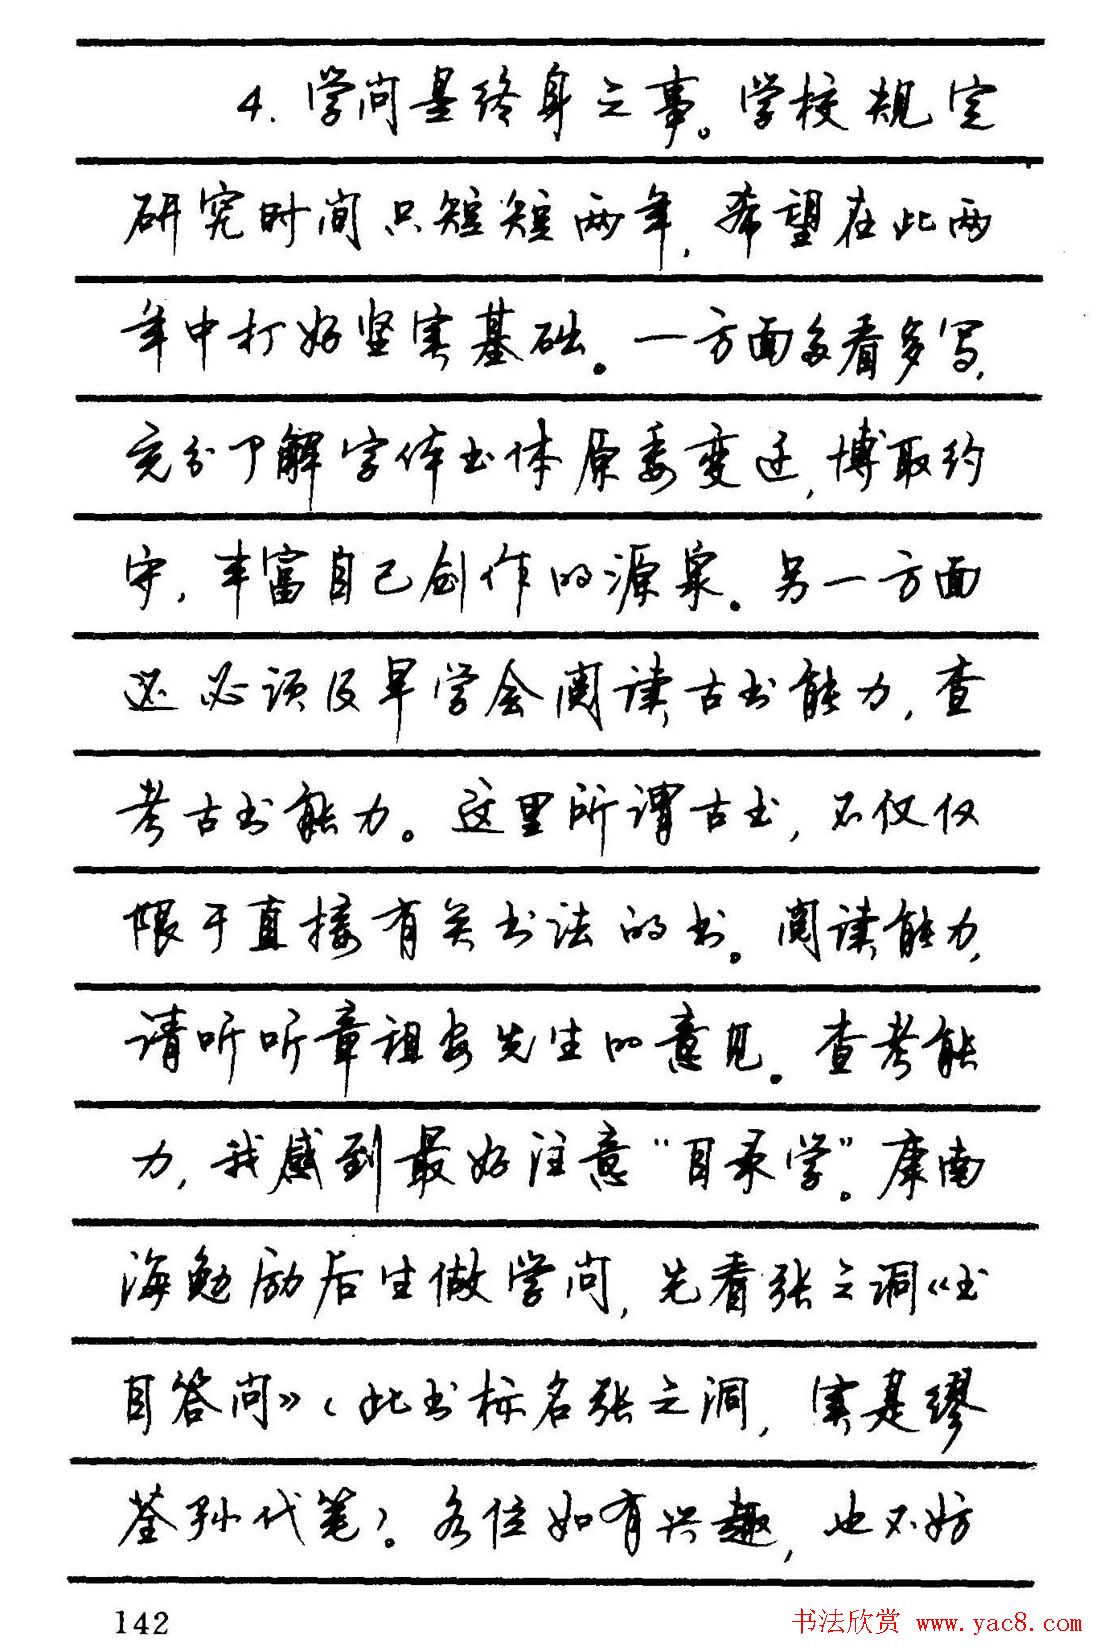 4. 学问是终身之事。学校规定
研究时间只短短两年，希望在此两
年中打好坚实基础。一方面多看多写，
充分了解字体书体原委变迁，博取约
守，丰富自己创作的源泉。另一方面
还必须及早学会阅读古书能力，查
考古书能力。这里所谓古书，不仅仅
限于直接有关书法的书。阅读能力，
请听听章祖安先生的意见。查考能
力，我感到最好注意“目录学”。康南
海勉励后生做学问，先看张之洞《书
目答问》（此书标名张之洞，实是缪
荃孙代笔）。各位如有兴趣，也不妨
142
书法欣赏 www.yac8.com